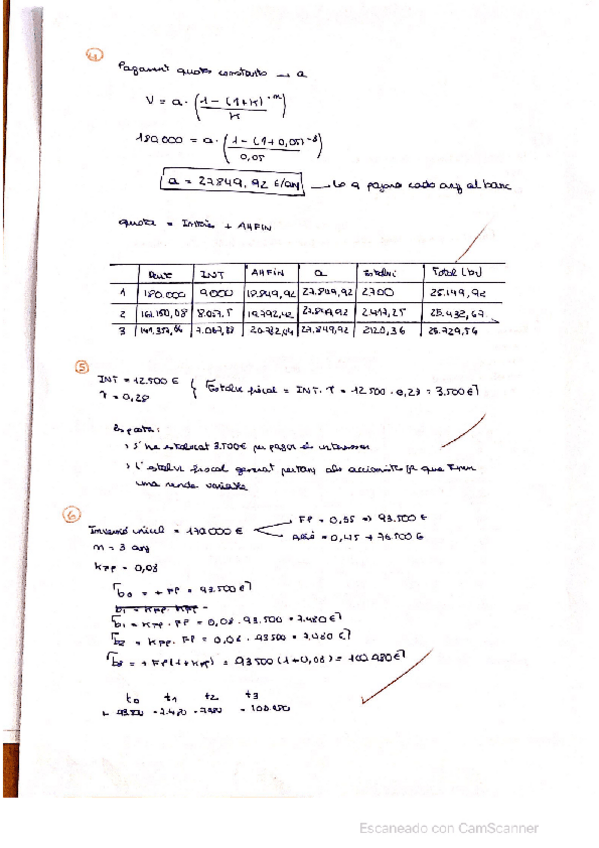 4
Pagament quotes constants → a
V = a · (1 - (1+K)^-n / K)
180.000 = a · (1 - (1+0,05)^-8 / 0,05)
a = 27.849,92 €/any → lo q pagarà cada any al banc
quota = Interès + AMFIN
Deute INT AMFIN a Estalvi Total (b)
1 180.000 9000 18.849,92 27.849,92 2700 25.149,92
2 161.150,08 8.057,5 19.792,42 27.849,92 2417,25 25.432,67
3 141.357,66 7.067,88 20.782,04 27.849,92 2120,36 25.729,56
5
INT = 12.500 €
T = 0,28
Estalvi fiscal = INT · T = 12.500 · 0,28 = 3.500 €
S'ha estalviat 3.500€ per pagar els interessos
L'estalvi fiscal generat pertany als accionistes ja que tenen
una renda variable
6
Inversió inicial = 170.000 €
FP = 0,55 ⇒ 93.500 €
0,45 → 76.500 €
n = 3 any
KFP = 0,08
b0 = + FP = 93.500 €
b1 = KFP · FP = 0,08 · 93.500 = 7.480 €
b2 = KFP · FP = 0,08 · 93500 = 7.480 €
b3 = + FP (1 + KFP) = 93500 (1 + 0,08) = 100.980 €
t0 t1 t2 t3
+ 93.500 - 7.480 - 7480 - 100.980
Escaneado con CamScanner